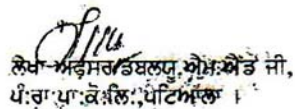 ਲੇਖਾ ਅਫਸਰ ਡਬਲਯੂ.ਐਮ.ਐਂਡ ਜੀ,
ਪੰ:ਰਾ:ਪਾ:ਕੋ:ਲਿ:,ਪਟਿਆਲਾ ।